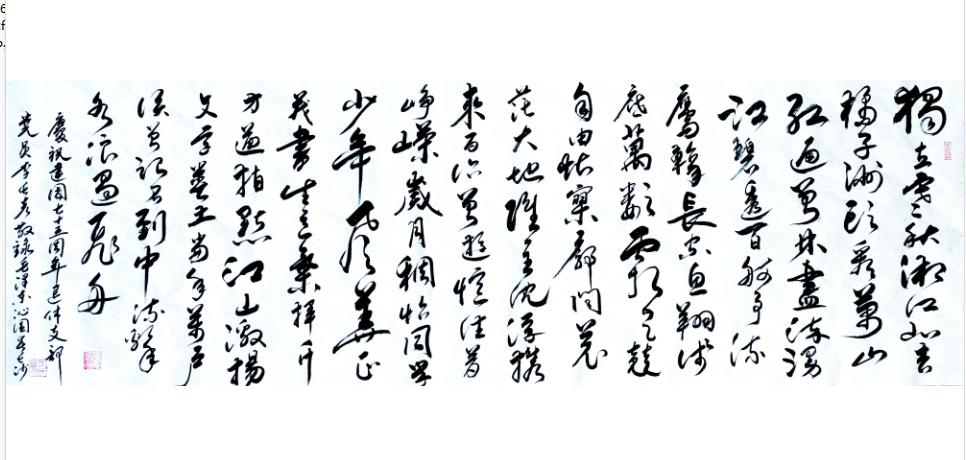 獨立寒秋湘江北去
橘子洲頭看萬山
紅遍層林盡染漫
江碧透百舸爭流
鷹擊長空魚翔淺
底萬類霜天競
自由悵寥廓問蒼
茫大地誰主沉浮攜
來百侶曾遊憶往昔
崢嶸歲月稠恰同學
少年風華正
茂書生意氣揮斥
方遒指點江山激揚
文字糞土當年萬戶
侯曾記否到中流擊
水浪遏飛舟
慶祝建國七十五周年退休支部
党員李敬録毛澤東沁園春長沙